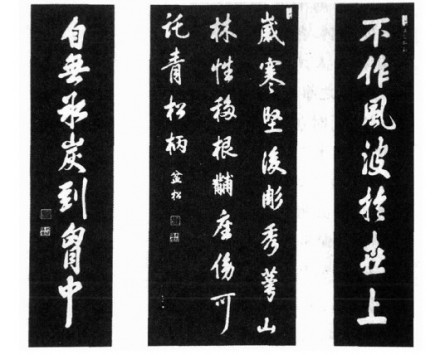 不作風波於世上
嵗寒堅後彫秀萼山
林性移根黼座傍可
託青松柄 盆松
自無冰炭到胷中